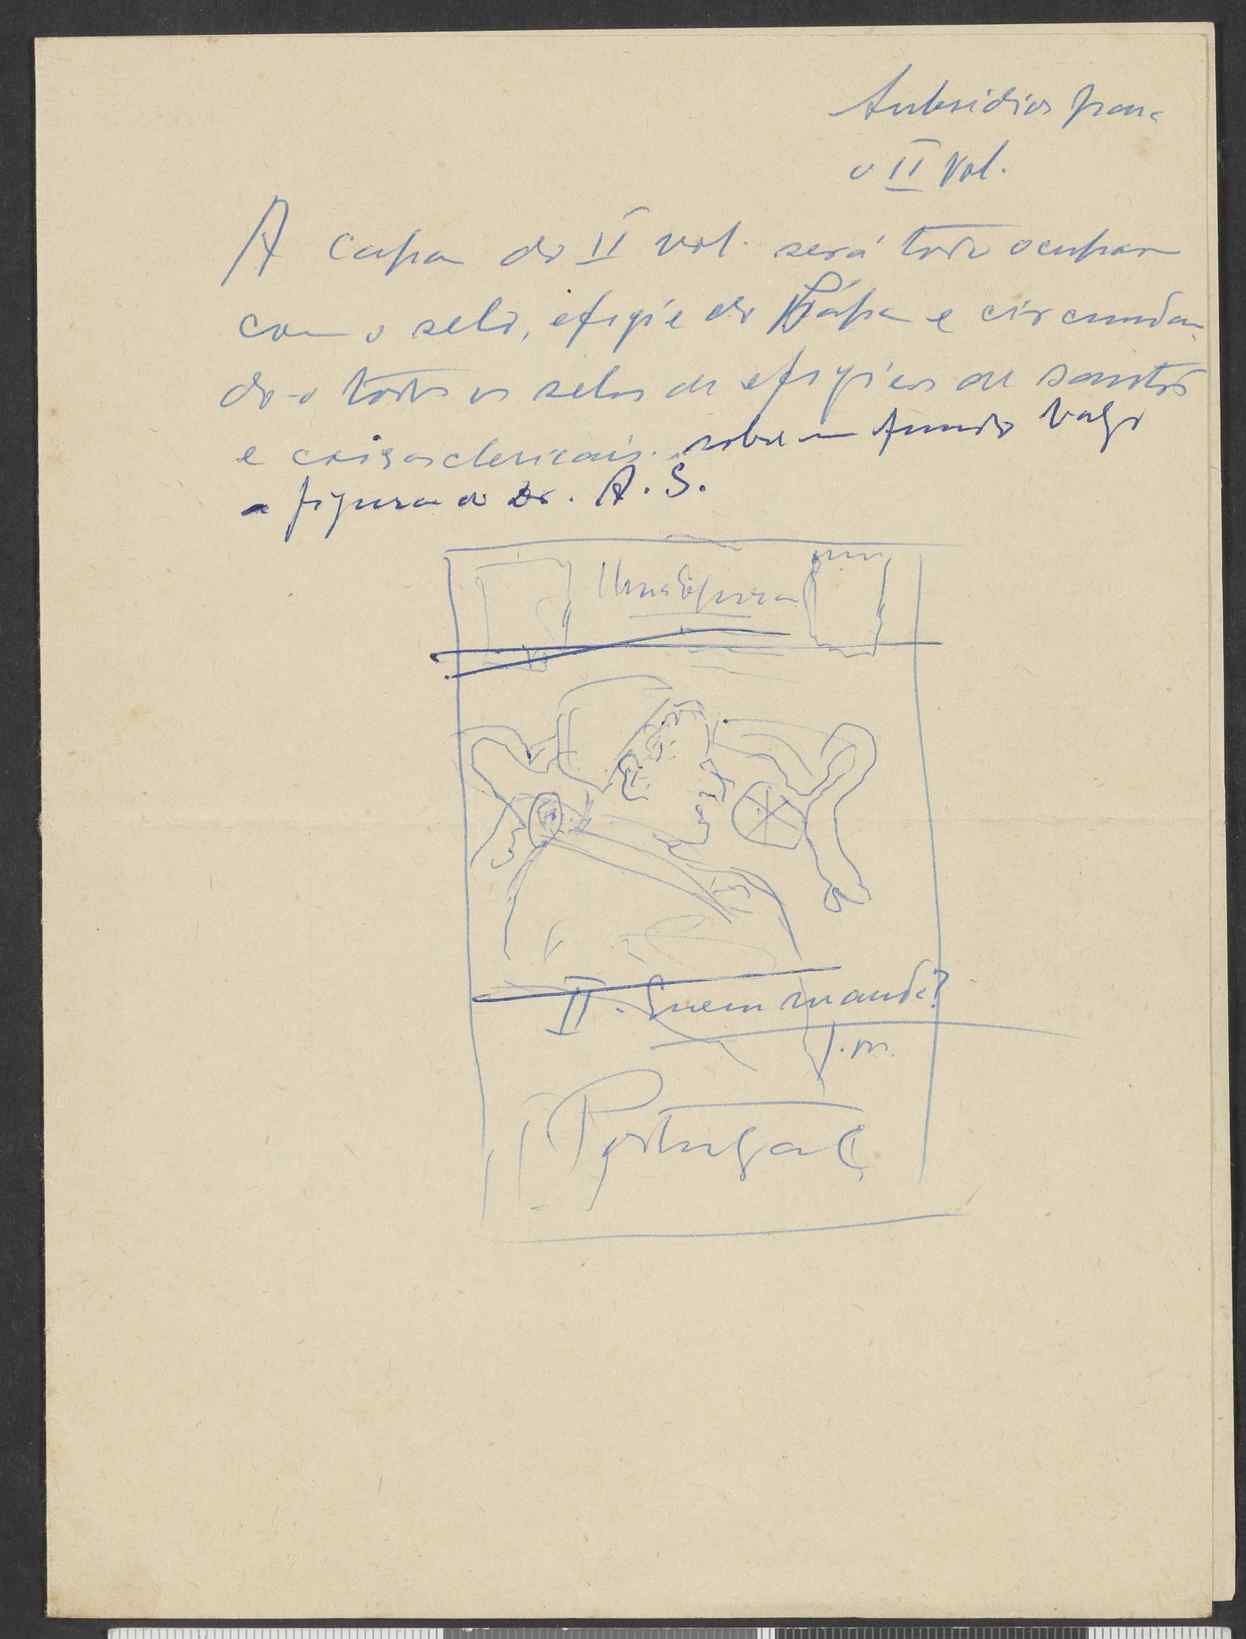 Subsidios para
o II Vol.
A capa do II vol. será toda ocupada
com o selo, efigie do Pápa e circundan-
do-o todos os selos de efigies de santos
e coisas clericais. sobre um fundo vago
a figura do Dr. A. S.
Uma Epoca
II - Quem manda?
J. M.
Portugal